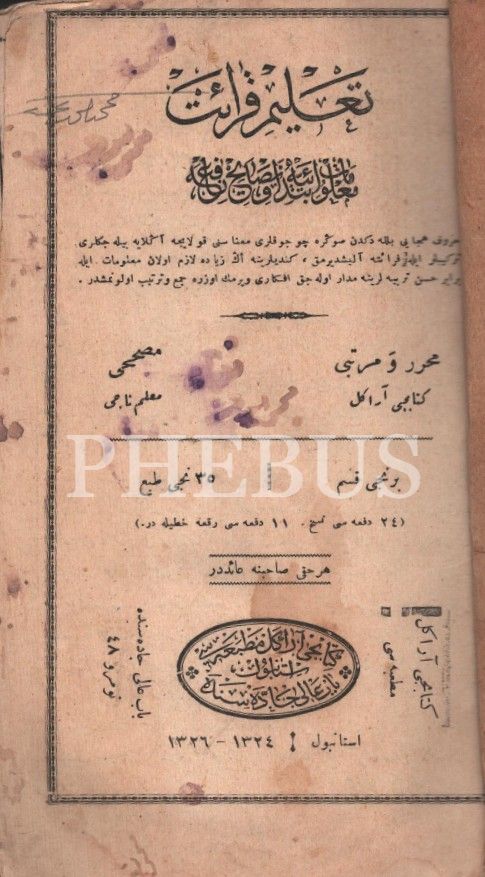 تعليم قرائت
معلومات ابتدائيه ونصايح نافعه
حروف هجایی بللهدکدن صوکره چوجوقلری معناسنی قولایجه آکلایه بیله‌جکلری
ترکیبلر ایله قرائته آلیشدیرمق، کندیلرینه اڭ زیاده لازم اولان معلومات ایله
برابر حسن تربیه لرینه مدار اوله جق افکاری ویرمك اوزره جمع وترتیب اولونمشدر.
محرر و مرتبی
مصححی
کتابجی آراکل
معلم ناجی
برنجی قسم
۳۵ نجی طبع
(۲٤ دفعه سی نسخ، ۱۱ دفعه سی رقعه خطیله در.)
هر حقی صاحبنه عائددر
کتابجی آراکل مطبعه‌سی
استانبولده
باب عالی جاده سنده
باب عالی جاده‌سنده
نومرو ٤۸
کتابجی آراکل
مطبعه سی
استانبول
۱۳۲٤ - ۱۳۲٦
PHEBUS